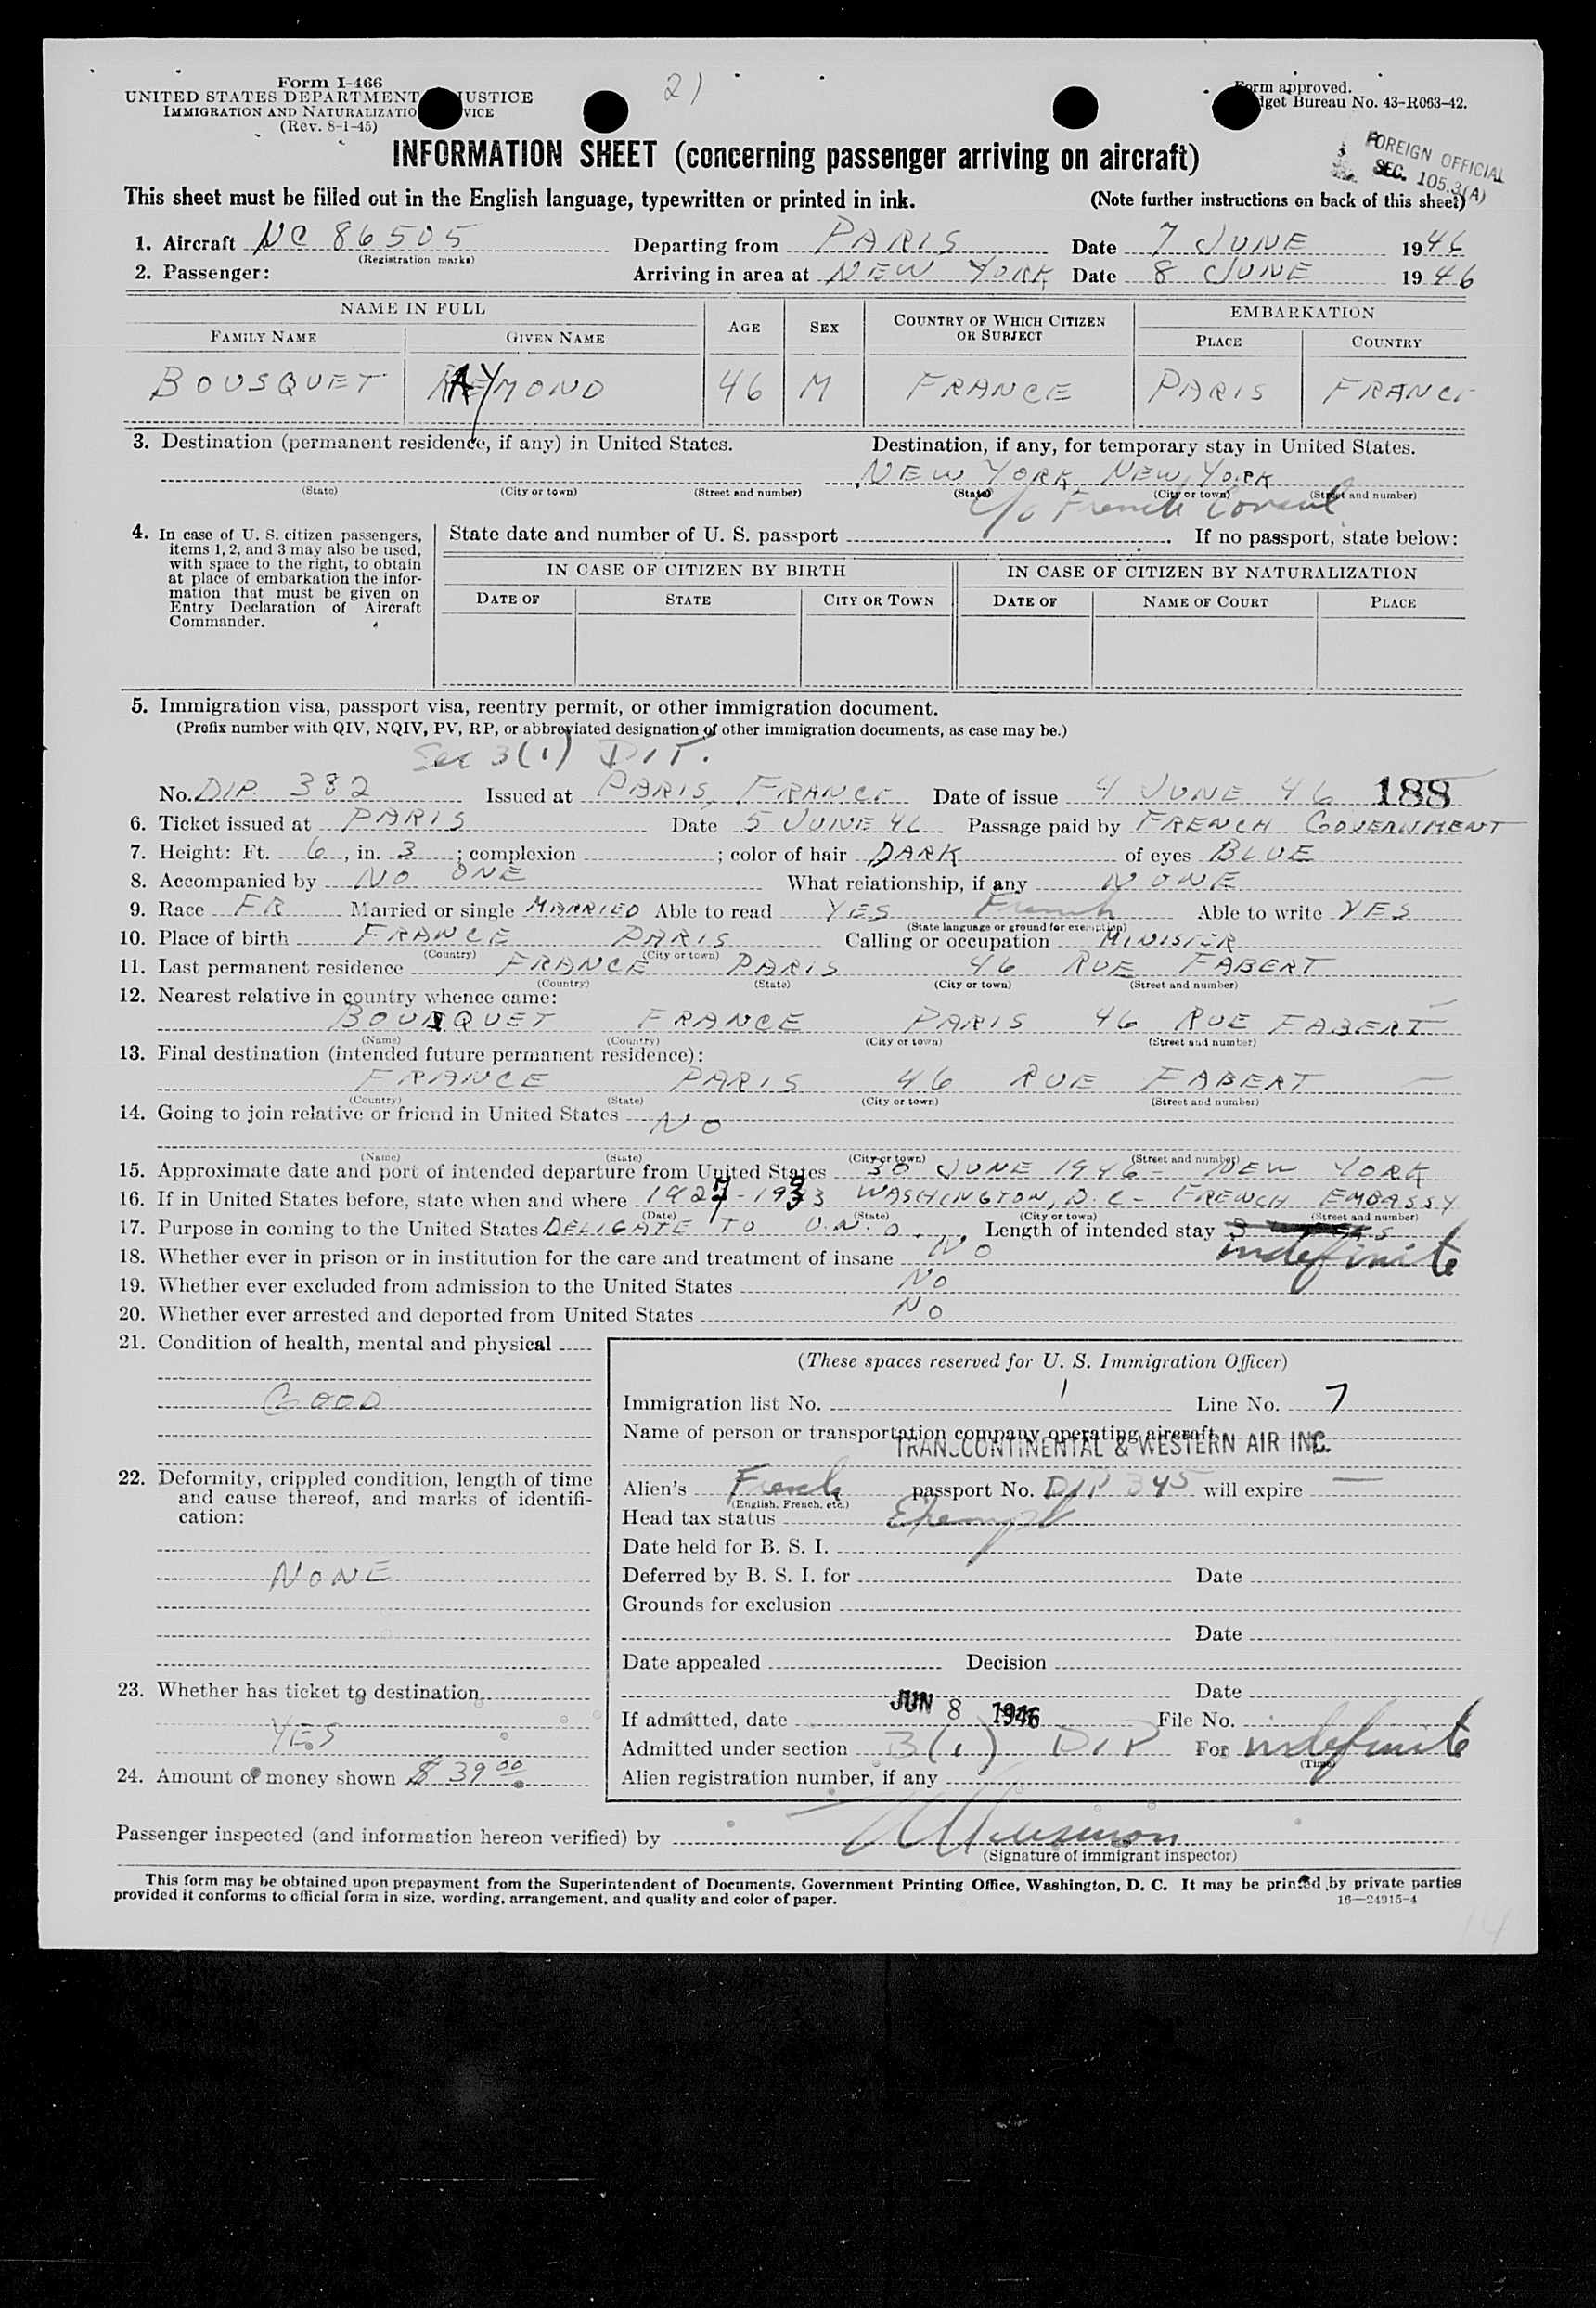 Form I-466
UNITED STATES DEPARTMENT JUSTICE
IMMIGRATION AND NATURALIZATIO VICE
(Rev. 8-1-45)
21
Form approved.
dget Bureau No. 43-R063-42.
FOREIGN OFFICIAL
SEC. 105.3(A)
INFORMATION SHEET (concerning passenger arriving on aircraft)
This sheet must be filled out in the English language, typewritten or printed in ink. (Note further instructions on back of this sheet)
1. Aircraft NC 86505 Departing from PARIS Date 7 JUNE 1946
(Registration marks)
2. Passenger: Arriving in area at NEW YORK Date 8 JUNE 1946
NAME IN FULL AGE SEX COUNTRY OF WHICH CITIZEN OR SUBJECT EMBARKATION
FAMILY NAME GIVEN NAME PLACE COUNTRY
BOUSQUET RAYMOND 46 M FRANCE PARIS FRANCE
3. Destination (permanent residence, if any) in United States. Destination, if any, for temporary stay in United States.
NEW YORK, NEW YORK
(State) (City or town) (Street and number) (State) (City or town) (Street and number)
c/o French Consul
4. In case of U. S. citizen passengers, items 1, 2, and 3 may also be used, with space to the right, to obtain at place of embarkation the information that must be given on Entry Declaration of Aircraft Commander.
State date and number of U. S. passport . If no passport, state below:
IN CASE OF CITIZEN BY BIRTH IN CASE OF CITIZEN BY NATURALIZATION
DATE OF STATE CITY OR TOWN DATE OF NAME OF COURT PLACE
5. Immigration visa, passport visa, reentry permit, or other immigration document.
(Prefix number with QIV, NQIV, PV, RP, or abbreviated designation of other immigration documents, as case may be.)
Sec 3(1) DIP.
No. DIP. 382 Issued at PARIS, FRANCE Date of issue 4 JUNE 46 188
6. Ticket issued at PARIS Date 5 JUNE 46 Passage paid by FRENCH GOVERNMENT
7. Height: Ft. 6, in. 3; complexion ; color of hair DARK of eyes BLUE
8. Accompanied by NO ONE What relationship, if any NONE
9. Race FR Married or single MARRIED Able to read YES French Able to write YES
(State language or ground for exemption)
10. Place of birth FRANCE PARIS Calling or occupation MINISTER
(Country) (City or town)
11. Last permanent residence FRANCE PARIS 46 RUE FABERT
(Country) (State) (City or town) (Street and number)
12. Nearest relative in country whence came:
BOUSQUET FRANCE PARIS 46 RUE FABERT
(Name) (Country) (City or town) (Street and number)
13. Final destination (intended future permanent residence):
FRANCE PARIS 46 RUE FABERT
(Country) (State) (City or town) (Street and number)
14. Going to join relative or friend in United States NO
(Name) (State) (City or town) (Street and number)
15. Approximate date and port of intended departure from United States 30 JUNE 1946 - NEW YORK
16. If in United States before, state when and where 1927-1933 WASHINGTON, D.C. - FRENCH EMBASSY
(Date) (State) (City or town) (Street and number)
17. Purpose in coming to the United States DELIGATE TO U.N.O. Length of intended stay 3 WEEKS
indefinite
18. Whether ever in prison or in institution for the care and treatment of insane NO
19. Whether ever excluded from admission to the United States NO
20. Whether ever arrested and deported from United States NO
21. Condition of health, mental and physical
GOOD
22. Deformity, crippled condition, length of time and cause thereof, and marks of identification:
NONE
23. Whether has ticket to destination
YES
24. Amount of money shown $ 39.00
(These spaces reserved for U. S. Immigration Officer)
Immigration list No. 1 Line No. 7
Name of person or transportation company operating aircraft
TRANSCONTINENTAL & WESTERN AIR INC.
Alien's French passport No. DIP 345 will expire —
(English, French, etc.)
Head tax status Exempt
Date held for B. S. I.
Deferred by B. S. I. for Date
Grounds for exclusion
Date
Date appealed Decision
Date
If admitted, date JUN 8 1946 File No.
Admitted under section 3(1) DIP For indefinite
(Time)
Alien registration number, if any
Passenger inspected (and information hereon verified) by
(Signature of immigrant inspector)
This form may be obtained upon prepayment from the Superintendent of Documents, Government Printing Office, Washington, D. C. It may be printed by private parties
provided it conforms to official form in size, wording, arrangement, and quality and color of paper. 16—24915-4
14